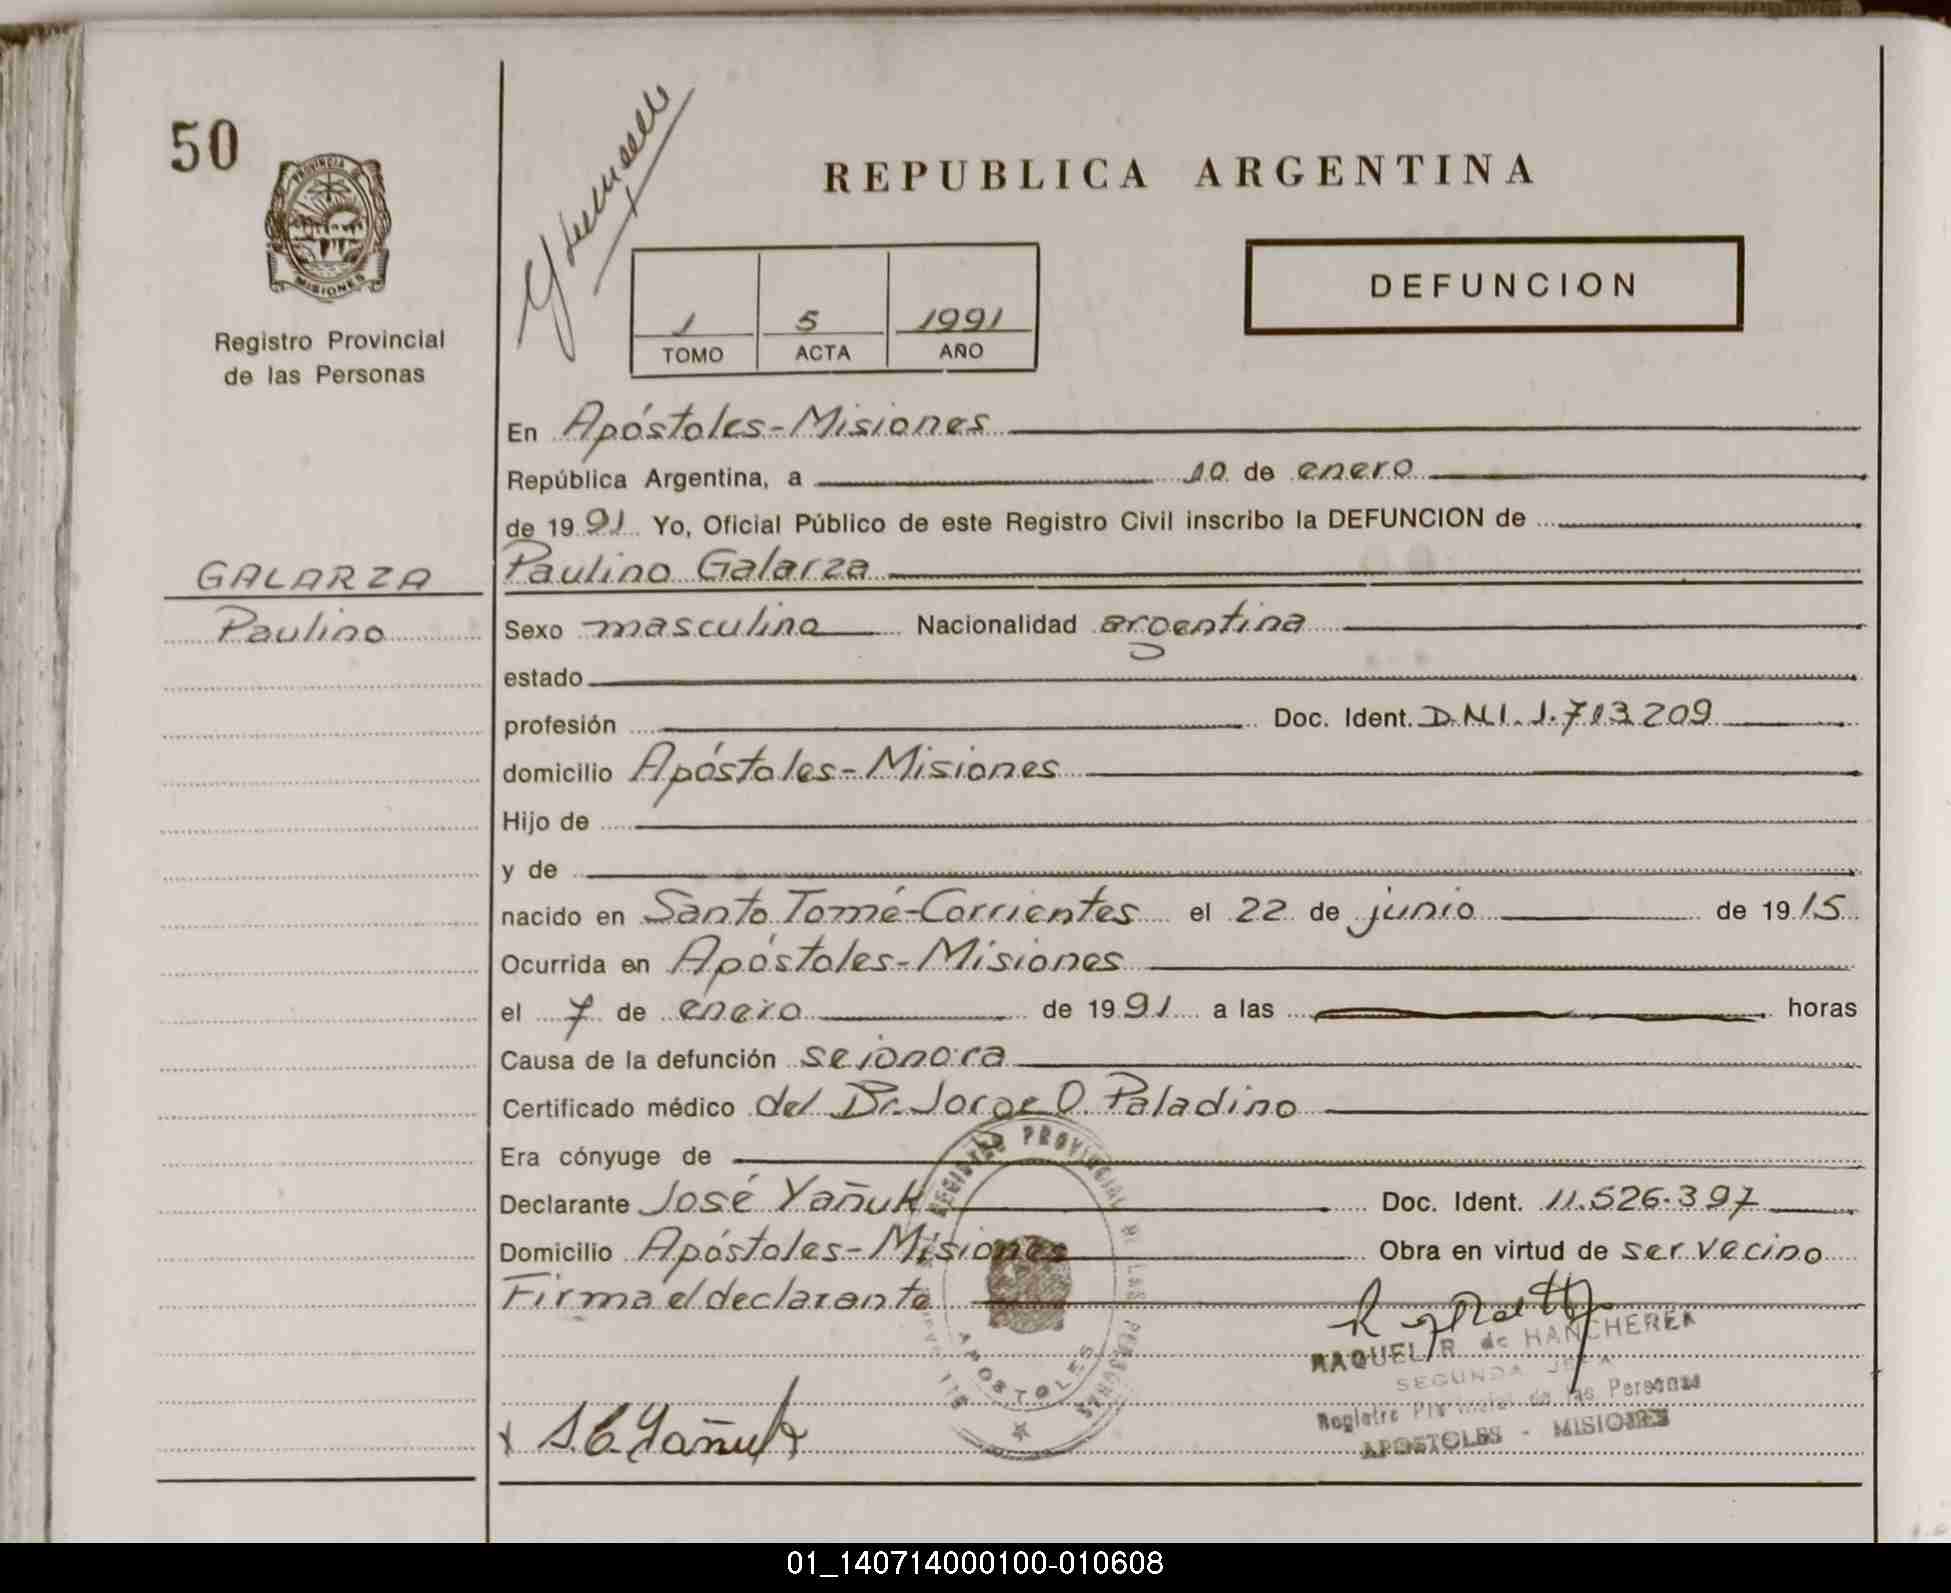 50
PROVINCIA
MISIONES
Registro Provincial
de las Personas
REPUBLICA ARGENTINA
DEFUNCION
1 5 1991
TOMO ACTA AÑO
En Apóstoles-Misiones
República Argentina, a 10 de enero
de 1991 Yo, Oficial Público de este Registro Civil inscribo la DEFUNCION de
GALARZA
Paulino
Paulino Galarza
Sexo masculino Nacionalidad argentina
estado
profesión Doc. Ident. D.N.I. 1.713209
domicilio Apóstoles-Misiones
Hijo de
y de
nacido en Santo Tomé-Corrientes el 22 de junio de 1915
Ocurrida en Apóstoles-Misiones
el 7 de enero de 1991 a las horas
Causa de la defunción se ignora
Certificado médico del Dr. Jorge O. Paladino
Era cónyuge de
Declarante José Yañuk Doc. Ident. 11.526.397
Domicilio Apóstoles-Misiones Obra en virtud de ser vecino
Firma el declarante
REGISTRO PROVINCIAL DE LAS PERSONAS
APOSTOLES
RAQUEL R de HANCHEREK
SEGUNDA JEFA
Registro Provincial de las Personas
APOSTOLES - MISIONES
J.C. Yañuk
01_140714000100-010608